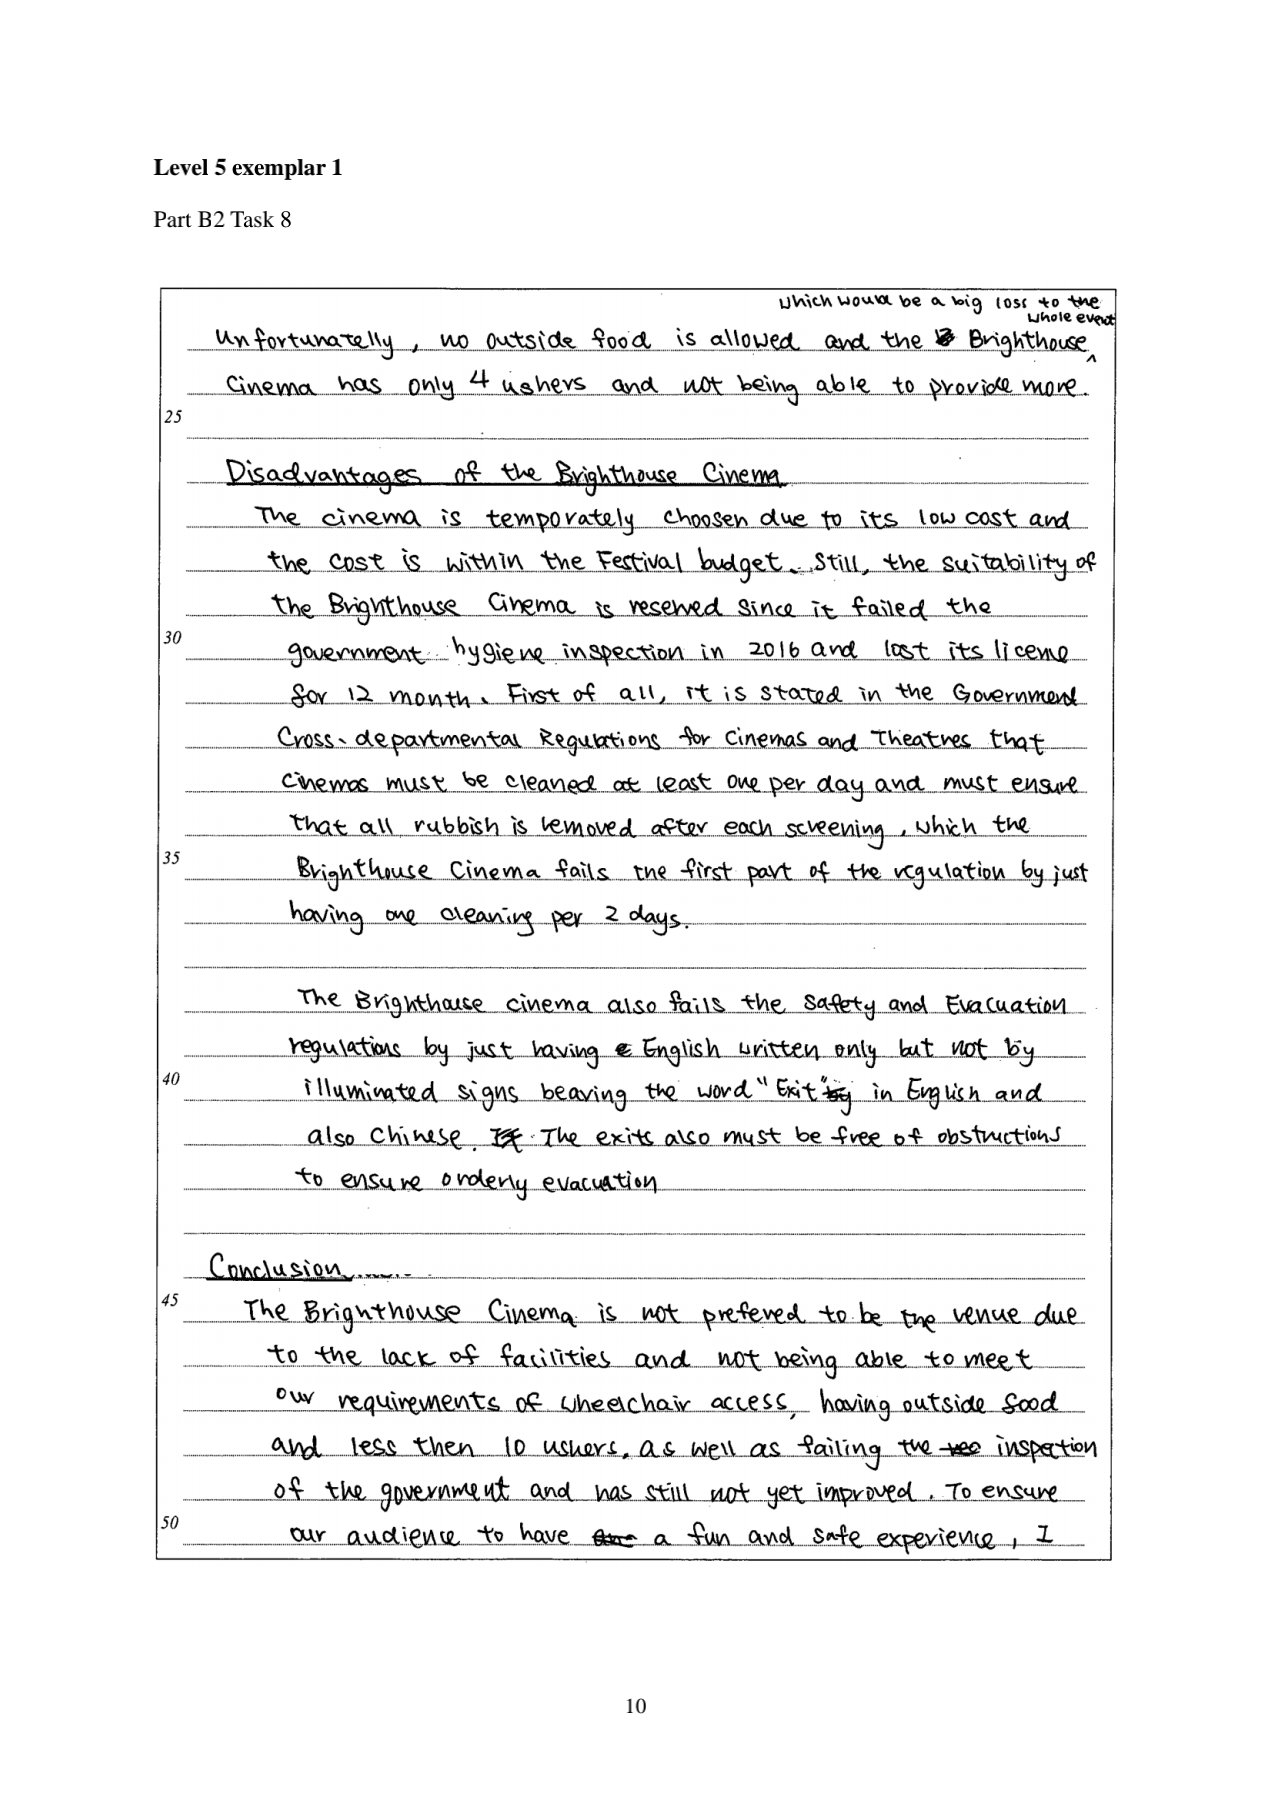 Level 5 exemplar 1
Part B2 Task 8
which would be a big loss to the
whole event
Unfortunatelly, no outside food is allowed and the Brighthouse ^
Cinema has only 4 ushers and not being able to provide more.
25
Disadvantages of the Brighthouse Cinema
The cinema is temporately choosen due to its low cost and
the cost is within the Festival budget. Still, the suitability of
the Brighthouse Cinema is reserved since it failed the
30
government hygiene inspection in 2016 and lost its license
for 12 month. First of all, it is stated in the Government
Cross-departmental Regulations for Cinemas and Theatres that
cinemas must be cleaned at least one per day and must ensure
that all rubbish is removed after each screening, which the
35
Brighthouse Cinema fails the first part of the regulation by just
having one cleaning per 2 days.
The Brighthouse cinema also fails the Safety and Evacuation
regulations by just having English written only but not by
40
illuminated signs bearing the word "Exit" in English and
also Chinese. The exits also must be free of obstructions
to ensure orderly evacuation
Conclusion
45
The Brighthouse Cinema is not prefered to be the venue due
to the lack of facilities and not being able to meet
our requirements of wheelchair access, having outside food
and less then 10 ushers, as well as failing the inspection
of the government and has still not yet improved. To ensure
50
our audience to have a fun and safe experience, I
10